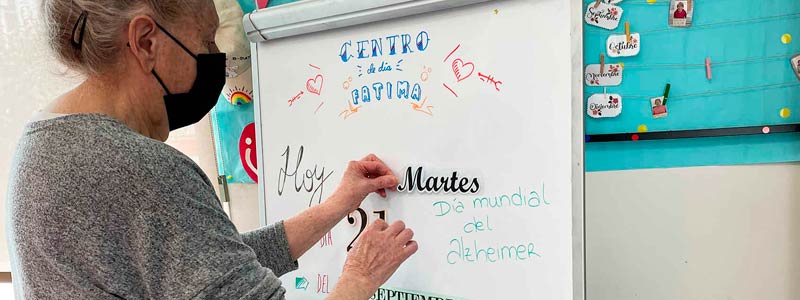 CENTRO
de día
FATIMA
Hoy
Martes
DIA
21
Día mundial
del
alzheimer
DEL
SEPTIEMB
Septiembre
Octubre
Noviembre
Diciembre